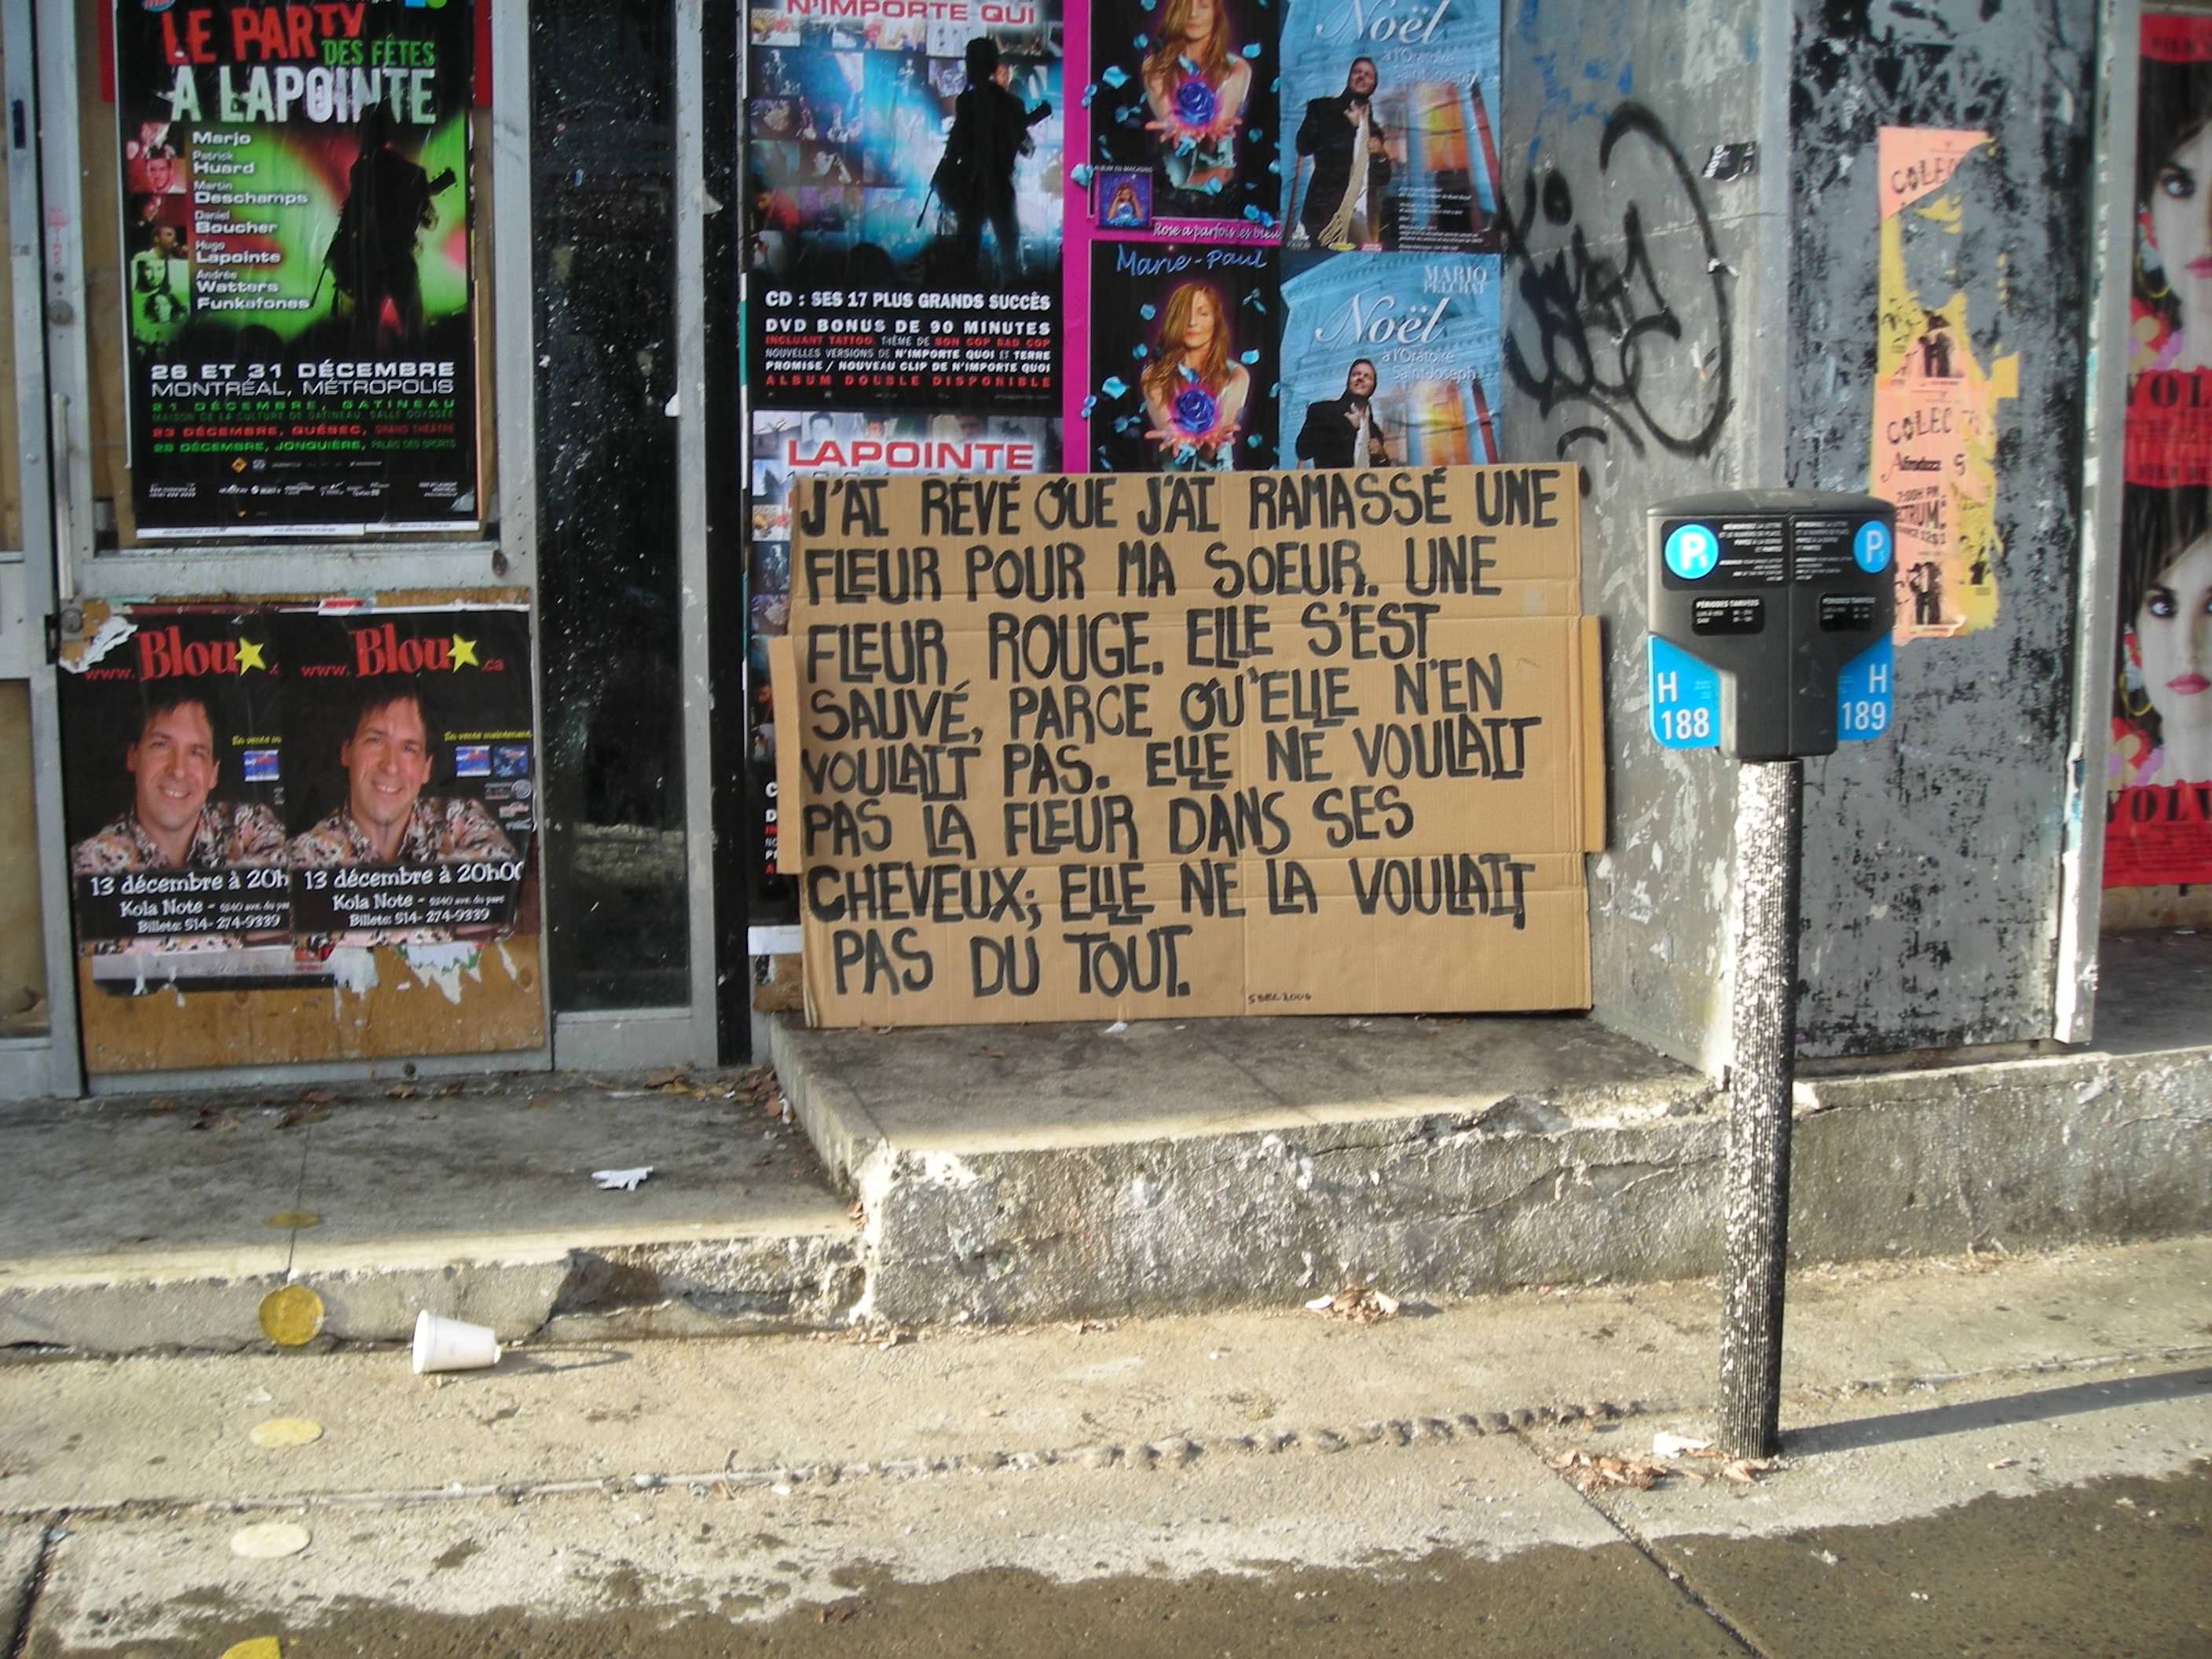 LE PARTY
DES FÊTES
À LAPOINTE
Marjo
Patrick
Huard
Martin
Deschamps
Daniel
Boucher
Hugo
Lapointe
Andrée
Watters
Funkafones
26 ET 31 DÉCEMBRE
MONTRÉAL, MÉTROPOLIS
21 DÉCEMBRE, GATINEAU
MAISON DE LA CULTURE DE GATINEAU, SALLE ODYSSÉE
23 DÉCEMBRE, QUÉBEC, GRAND THÉÂTRE
28 DÉCEMBRE, JONQUIÈRE, PALAIS DES SPORTS
www.Blou
13 décembre à 20h
Kola Note - 5240 ave. du parc
Billets: 514-274-9339
www.Blou.ca
En vente maintenant
13 décembre à 20h00
Kola Note - 5240 ave. du parc
Billets: 514-274-9339
N'IMPORTE QUI
CD : SES 17 PLUS GRANDS SUCCÈS
DVD BONUS DE 90 MINUTES
INCLUANT TATTOO, THÈME DE BON COP BAD COP
NOUVELLES VERSIONS DE N'IMPORTE QUOI ET TERRE
PROMISE / NOUVEAU CLIP DE N'IMPORTE QUOI
ALBUM DOUBLE DISPONIBLE
LAPOINTE
Rose a parfois les bleu
Marie-Paul
Noël
à l'Oratoire
Saint-Joseph
MARIO
PELCHAT
Noël
à l'Oratoire
Saint-Joseph
J'AI RÊVÉ QUE J'AI RAMASSÉ UNE
FLEUR POUR MA SOEUR. UNE
FLEUR ROUGE. ELLE S'EST
SAUVÉ, PARCE QU'ELLE N'EN
VOULAIT PAS. ELLE NE VOULAIT
PAS LA FLEUR DANS SES
CHEVEUX; ELLE NE LA VOULAIT
PAS DU TOUT.
5 DEC 2006
P
P
PÉRIODES TARIFÉES
H
188
H
189
COLEC
COLEC